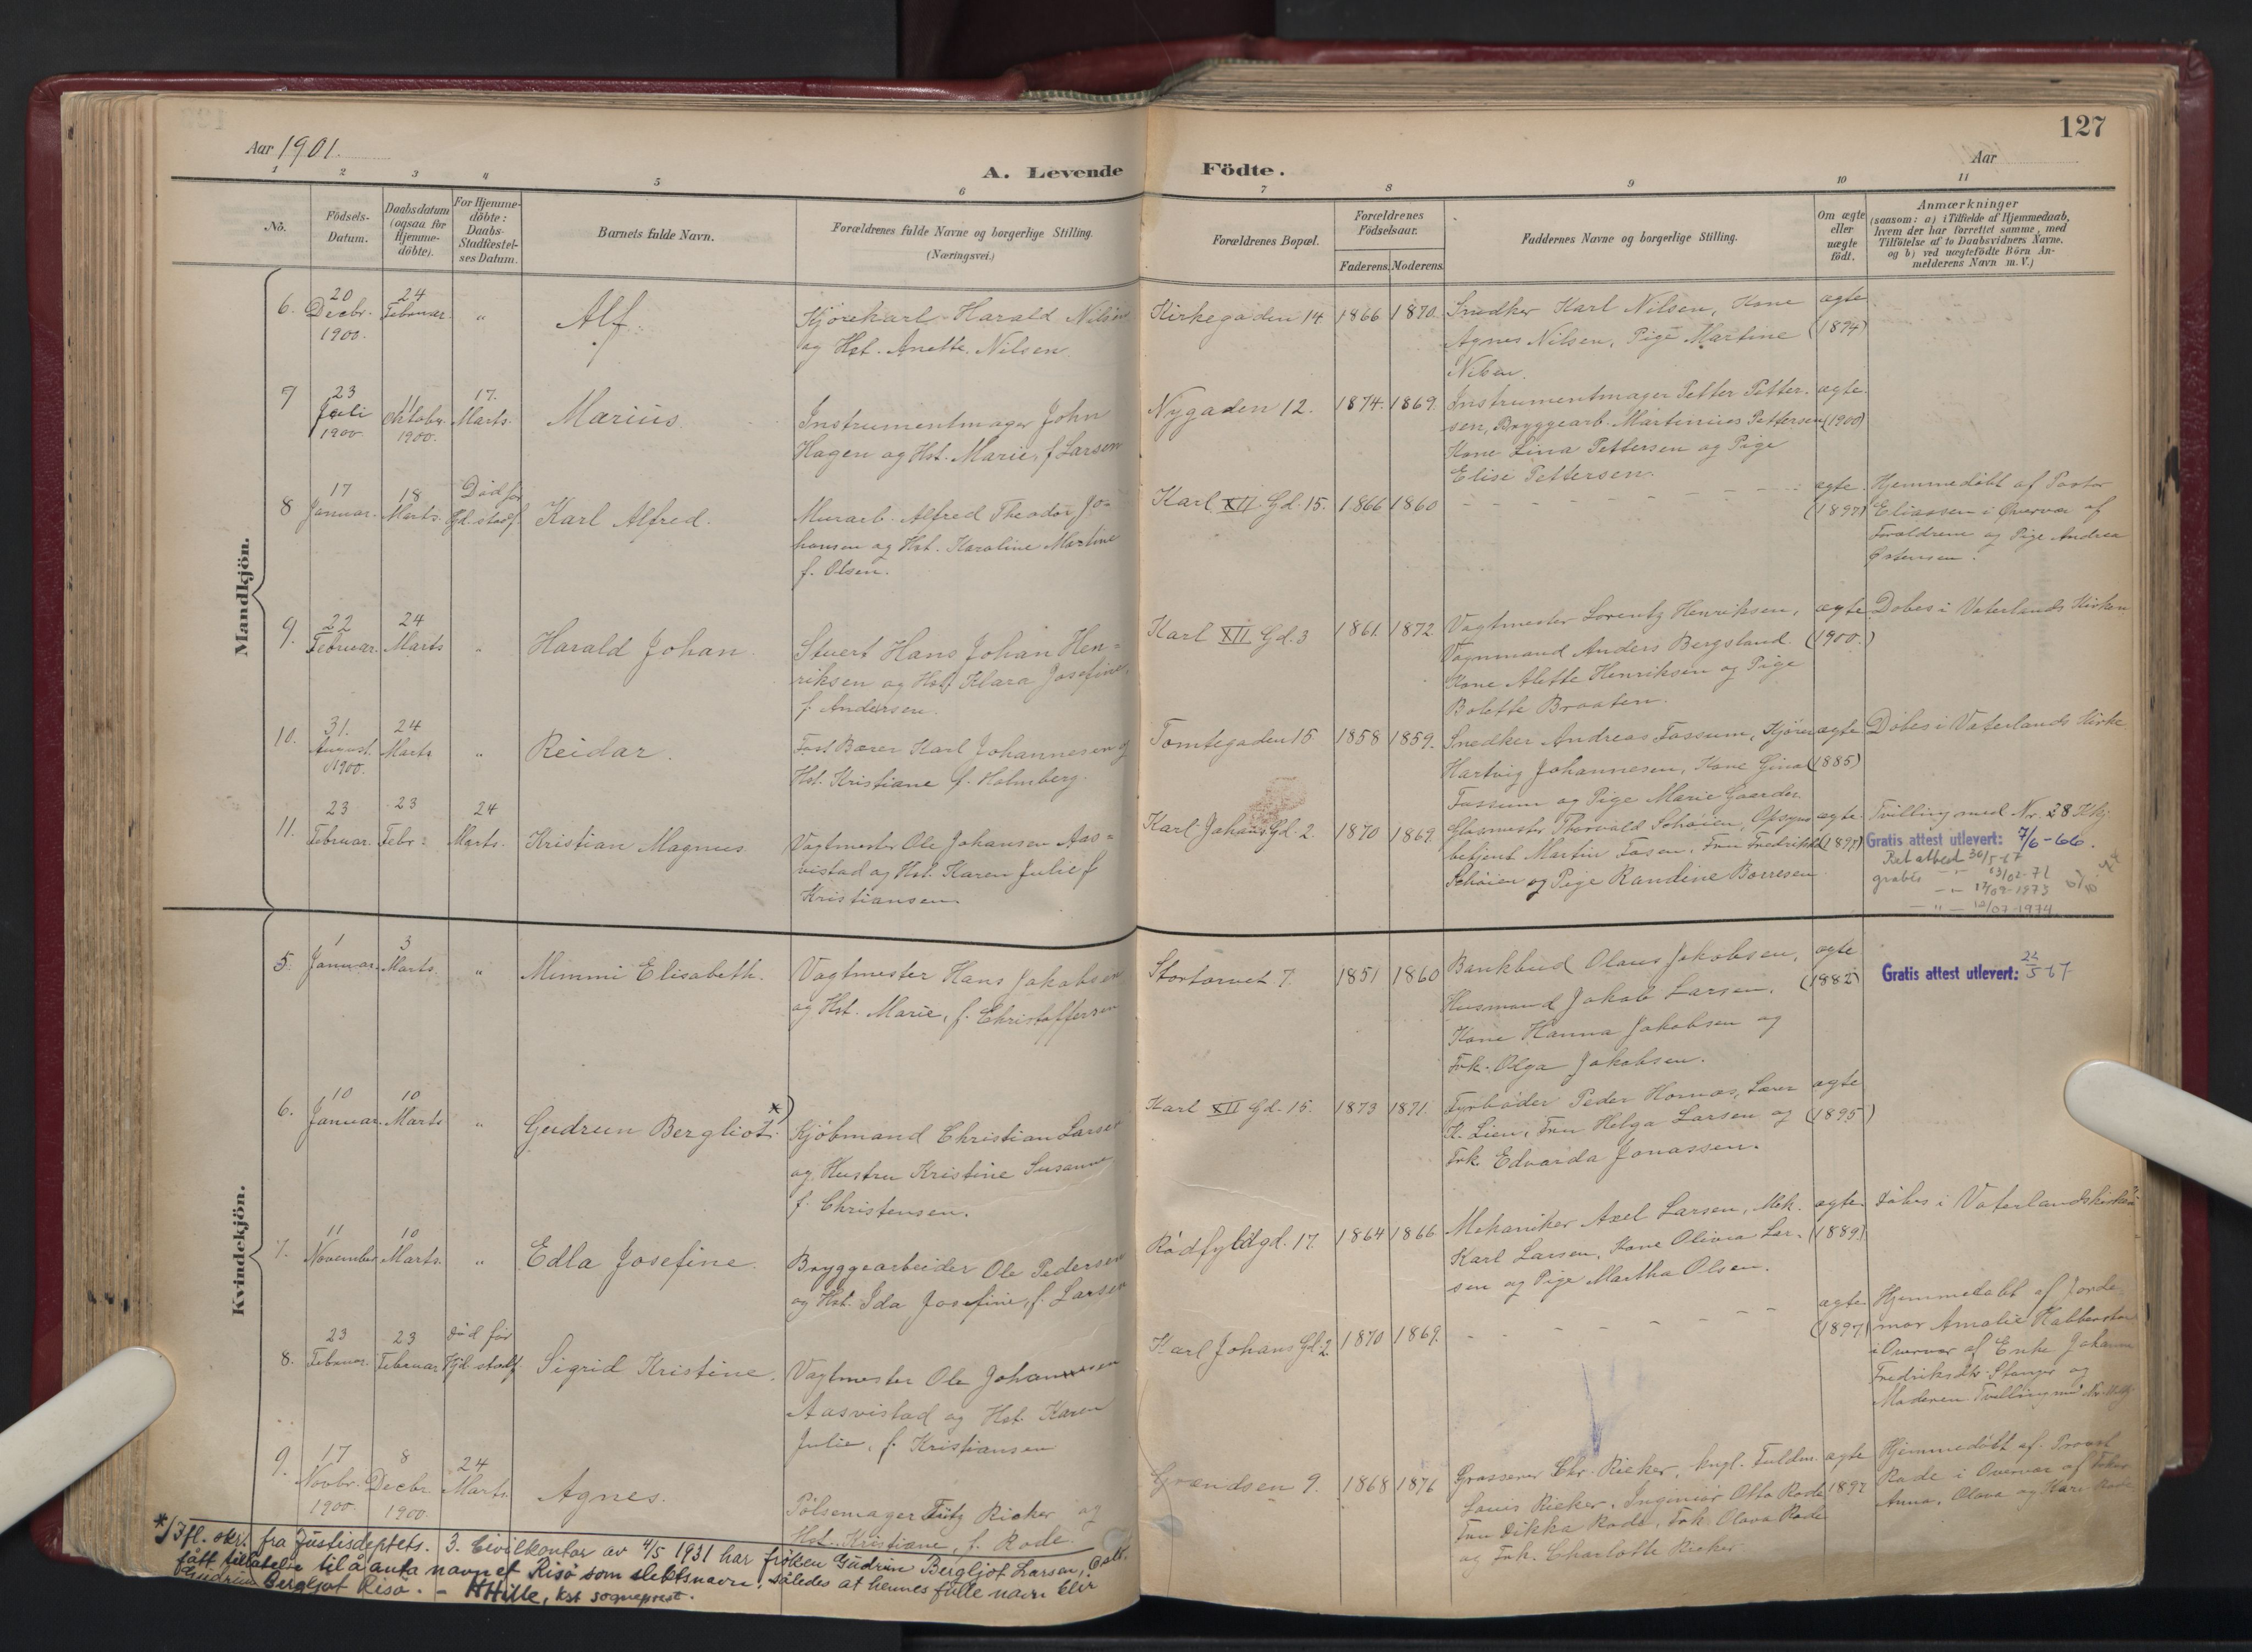 127
Aar 1901.
Aar
A. Levende Födte.
1 2 3 4 5 6 7 8 9 10 11
No.
Födsels-
Datum.
Daabsdatum
(ogsaa for
Hjemme-
döbte).
For Hjemme-
döbte:
Daabs-
Stadfæstel-
ses Datum.
Barnets fulde Navn.
Forældrenes fulde Navne og borgerlige Stilling.
(Næringsvei.)
Forældrenes Bopæl.
Forældrenes
Födselsaar.
Faderens. Moderens.
Faddernes Navne og borgerlige Stilling.
Om ægte
eller
uægte
födt.
Anmærkninger
(saasom: a) i Tilfælde af Hjemmedaab,
hvem der har forrettet samme, med
Tilföielse af to Daabsvidners Navne.
og b) ved uægtefödte Börn An-
melderens Navn m. V.)
Mandkjön.
6.
20
Decbr.
1900.
24
Februar
"
Alf.
Kjørekarl Harald Nilsen
og Hst. Anette Nilsen
Kirkegaden 14
1866
1870.
Snedker Karl Nilsen, Kone
Agnes Nilsen, Pige Martine
Nilsen.
ægte
(1894)
7
23
Juli
1900.
11
Oktober
1900.
17.
Marts.
Marius.
Instrumentmager John
Hagen og Hst. Marie, f. Larsen
Nygaden 12.
1874.
1869.
Instrumentmager Petter Petter-
sen, Bryggearb. Martinius Pettersen
Kone Lina Pettersen og Pige
Elise Pettersen.
ægte.
(1900)
8
17
Januar.
18
Marts.
Død før
Hjd. stadf.
Karl Alfred.
Murarb. Alfred Theodor Jo-
hansen og Hst. Karoline Martine
f. Olsen.
Karl XII Gd. 15.
1866
1860
ægte
(1897)
Hjemmedøbt af Pastor
Eliassen i Overvær af
Forældrene og Pige Andrea
Østensen.
9.
22
Februar.
24
Marts
"
Harald Johan.
Stuert Hans Johan Hen=
riksen og Hst. Klara Josefine,
f. Andersen.
Karl XII Gd. 3
1861.
1872.
Vagtmester Lorentz Henriksen,
Vognmand Anders Bergsland.
Kone Alette Henriksen og Pige
Bolette Braaten.
ægte
(1900.)
Døbes i Vaterlands Kirken
10.
31.
August.
1900.
24
Marts
"
Reidar.
Fast Bærer Karl Johannesen og
Hst. Kristiane f. Holmberg.
Tomtegaden 15
1858
1859.
Snedker Andreas Fossum, Kjører
Hartvig Johannesen, Kone Gina
Fossum og Pige Marie Gaarder.
ægte
(1885)
Døbes i Vaterlands Kirke
11.
23
Februar.
23
Febr.
24
Marts.
Kristian Magnus
Vagtmester Ole Johansen Aas=
vistad og Hst. Karen Julie f.
Kristiansen.
Karl Johans Gd. 2.
1870
1869.
Glasmester Thorvald Schøien, Opsyns
betjent Martin Fosen, Fru Fredrikke
Schøien og Pige Randine Børresen
ægte.
(1897)
Tvilling med Nr. 28 Kkj.
Gratis attest utlevert: 7/6-66.
gratis
12/07-1974.
Kvindekjön.
5.
1
Januar.
3
Marts
"
Mimmi Elisabeth.
Vagtmester Hans Jakobsen
og Hst. Marie, f. Christoffersen
Stortorvet 7.
1851
1860
Bankbud Olaus Jakobsen,
Husmand Jakob Larsen,
Kone Hanna Jakobsen og
Frk. Olga Jakobsen.
ægte
(1882)
Gratis attest utlevert: 22/5-67
6.
10
Januar.
10
Marts
"
Gudrun Bergliot. *)
Kjøbmand Christian Larsen
og Hustru Kristine Susanne
f. Christensen.
Karl XII Gd. 15.
1873
1871.
Fyrbøder Peder Homnæs, Lærer
K. Lien, Fru Helga Larsen og
Frk. Edvarda Jonassen.
ægte
(1895)
7.
11
November
10
Marts.
"
Edla Josefine.
Bryggearbeider Ole Pedersen
og Hst. Ida Josefine, f. Larsen
Rødfyldgd. 17.
1864
1866
Mekaniker Axel Larsen, Mek.
Karl Larsen, Kone Olivia Lar-
sen og Pige Martha Olsen.
ægte.
(1889)
Døbes i Vaterlandskirken
8.
23
Februar.
23
Februar.
død før
Hjd. stadf.
Sigrid Kristine.
Vagtmester Ole Johannesen
Aasvistad og Hst. Karen
Julie, f. Kristiansen
Karl Johans Gd. 2
1870
1869.
ægte.
(1897)
Hjemmedøbt af Jorde-
mor Amalie
i Overvær af Enke Johanne
Fredriksdtr Stanger og
Moderen Tvilling med
9.
17
Novbr.
1900
8
Decbr
1900
24
Marts.
Agnes.
Pølsemager Fritz Rieker og
Hst. Kristiane, f. Rode.
Grændsen 9.
1868
1876
Grosserer Chr. Rieker, kngl. Fuldm.
Louis Rieker, Ingeniør Otto Rode
Fru Dikka Rode, Frk. Olava Rode
og Frk. Charlotte Rieker
ægte
1897
Hjemmedøbt af Provst
Rode i Overvær af
Anna, Olava og Kari Rode
*) Ifl. skr. fra Justisdeptets. 3. Civilkontor av 4/5 1931 har frøken Gudrun Bergljot Larsen,
fått tillatelse til å anta navnet Risø som slektsnavn, således at hennes fulle navn blir
Gudrun Bergljot Risø. — HHille, kst sogneprest.